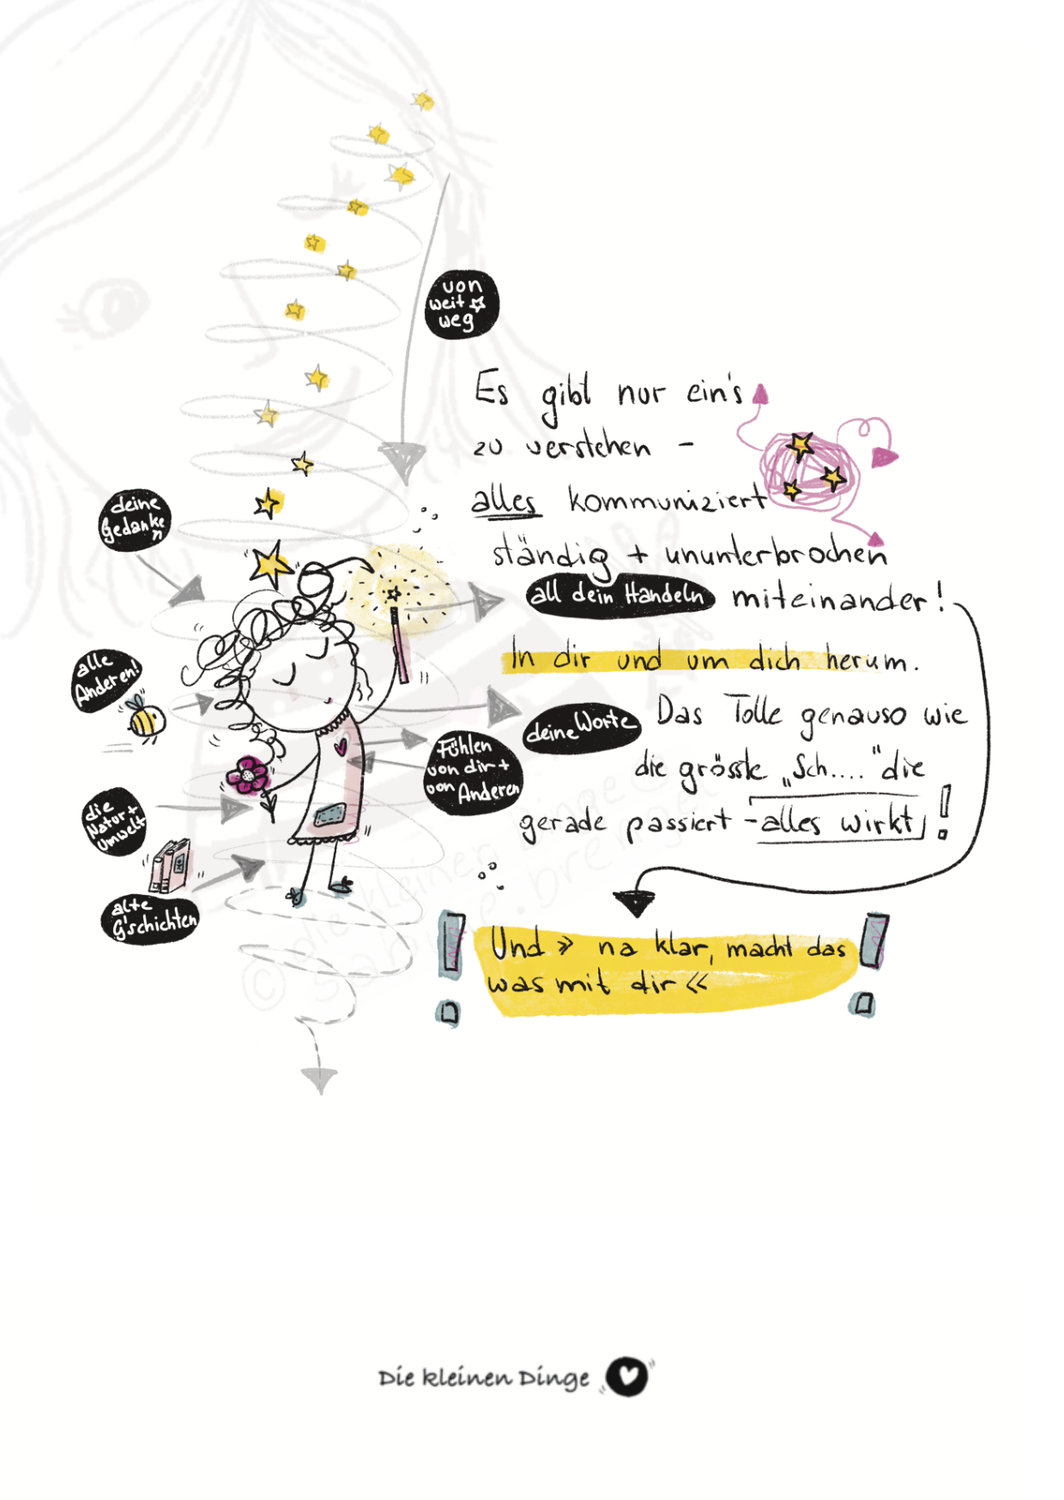 von
weit
weg
Es gibt nur ein's
zu verstehen -
alles kommuniziert
ständig + ununterbrochen
all dein Handeln
miteinander!
In dir und um dich herum.
deine
Gedanke
n
alle
Anderen!
die
Natur +
Umwelt
alte
G'schichten
Fühlen
von dir +
von Anderen
deine Worte
Das Tolle genauso wie
die grösste „Sch...." die
gerade passiert - alles wirkt!
Und » na klar, macht das
was mit dir «
© die kleinen Dinge
Die kleinen Dinge